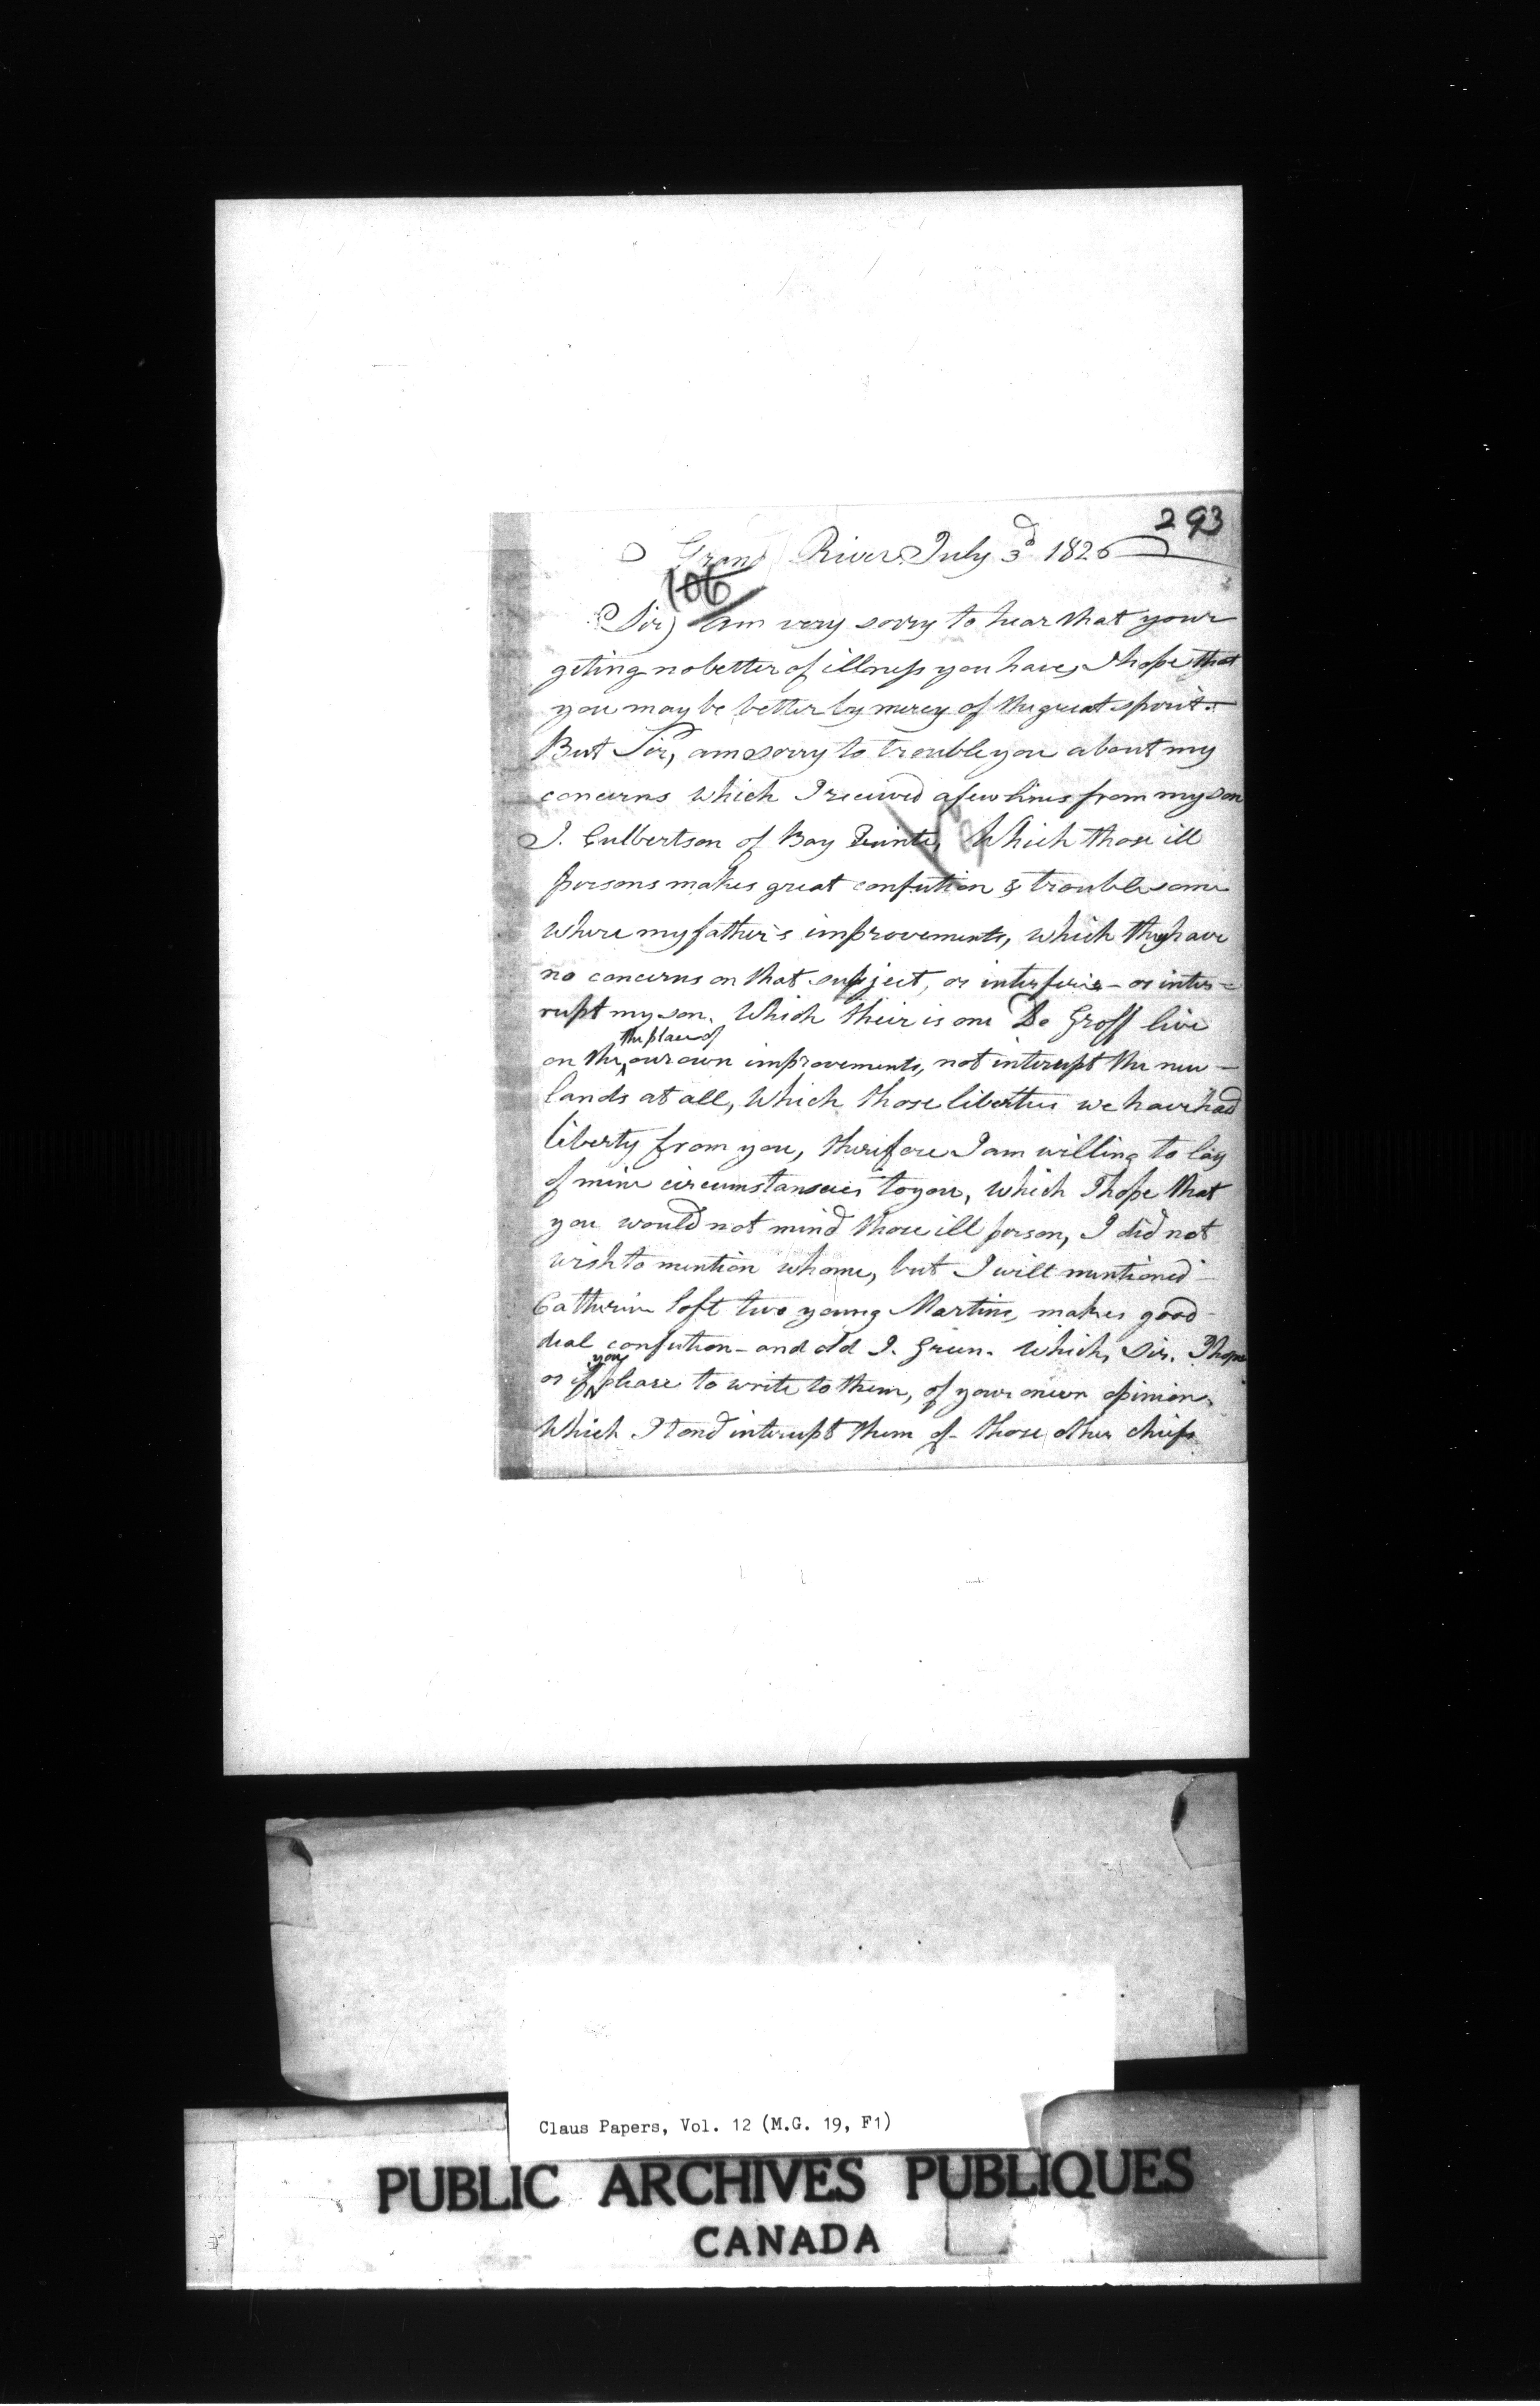 293
Grand River July 3d 1826
106
Sir) am very sorry to hear that your
geting no better of illness you have, I hope that
you may be better by mercy of the great spirit.
But Sir, am sorry to trouble you about my
concerns which I received a few lines from my son
J. Culbertson of Bay Quinte, Which those ill
persons makes great confution & troublesome
where my father's improvements, which they have
no concerns on that subject, or interferie - or inter=
rupt my son. Which their is one De Groff live
on the the place of our own improvements, not interupt the new -
lands at all, Which those liberties we have had
liberty from you, therefore I am willing to lay
of mine circumstances to you, which I hope that
you would not mind those ill person, I did not
wish to mention whome, but I will mentioned -
Catherin loft two young Martins, makes good -
deal confution - and old J. Green. Which, Sir. I hope
as if you please to write to them, of your own opinion,
Which I tend interupt them of - those other chiefs
Claus Papers, Vol. 12 (M.G. 19, F1)
PUBLIC ARCHIVES PUBLIQUES
CANADA